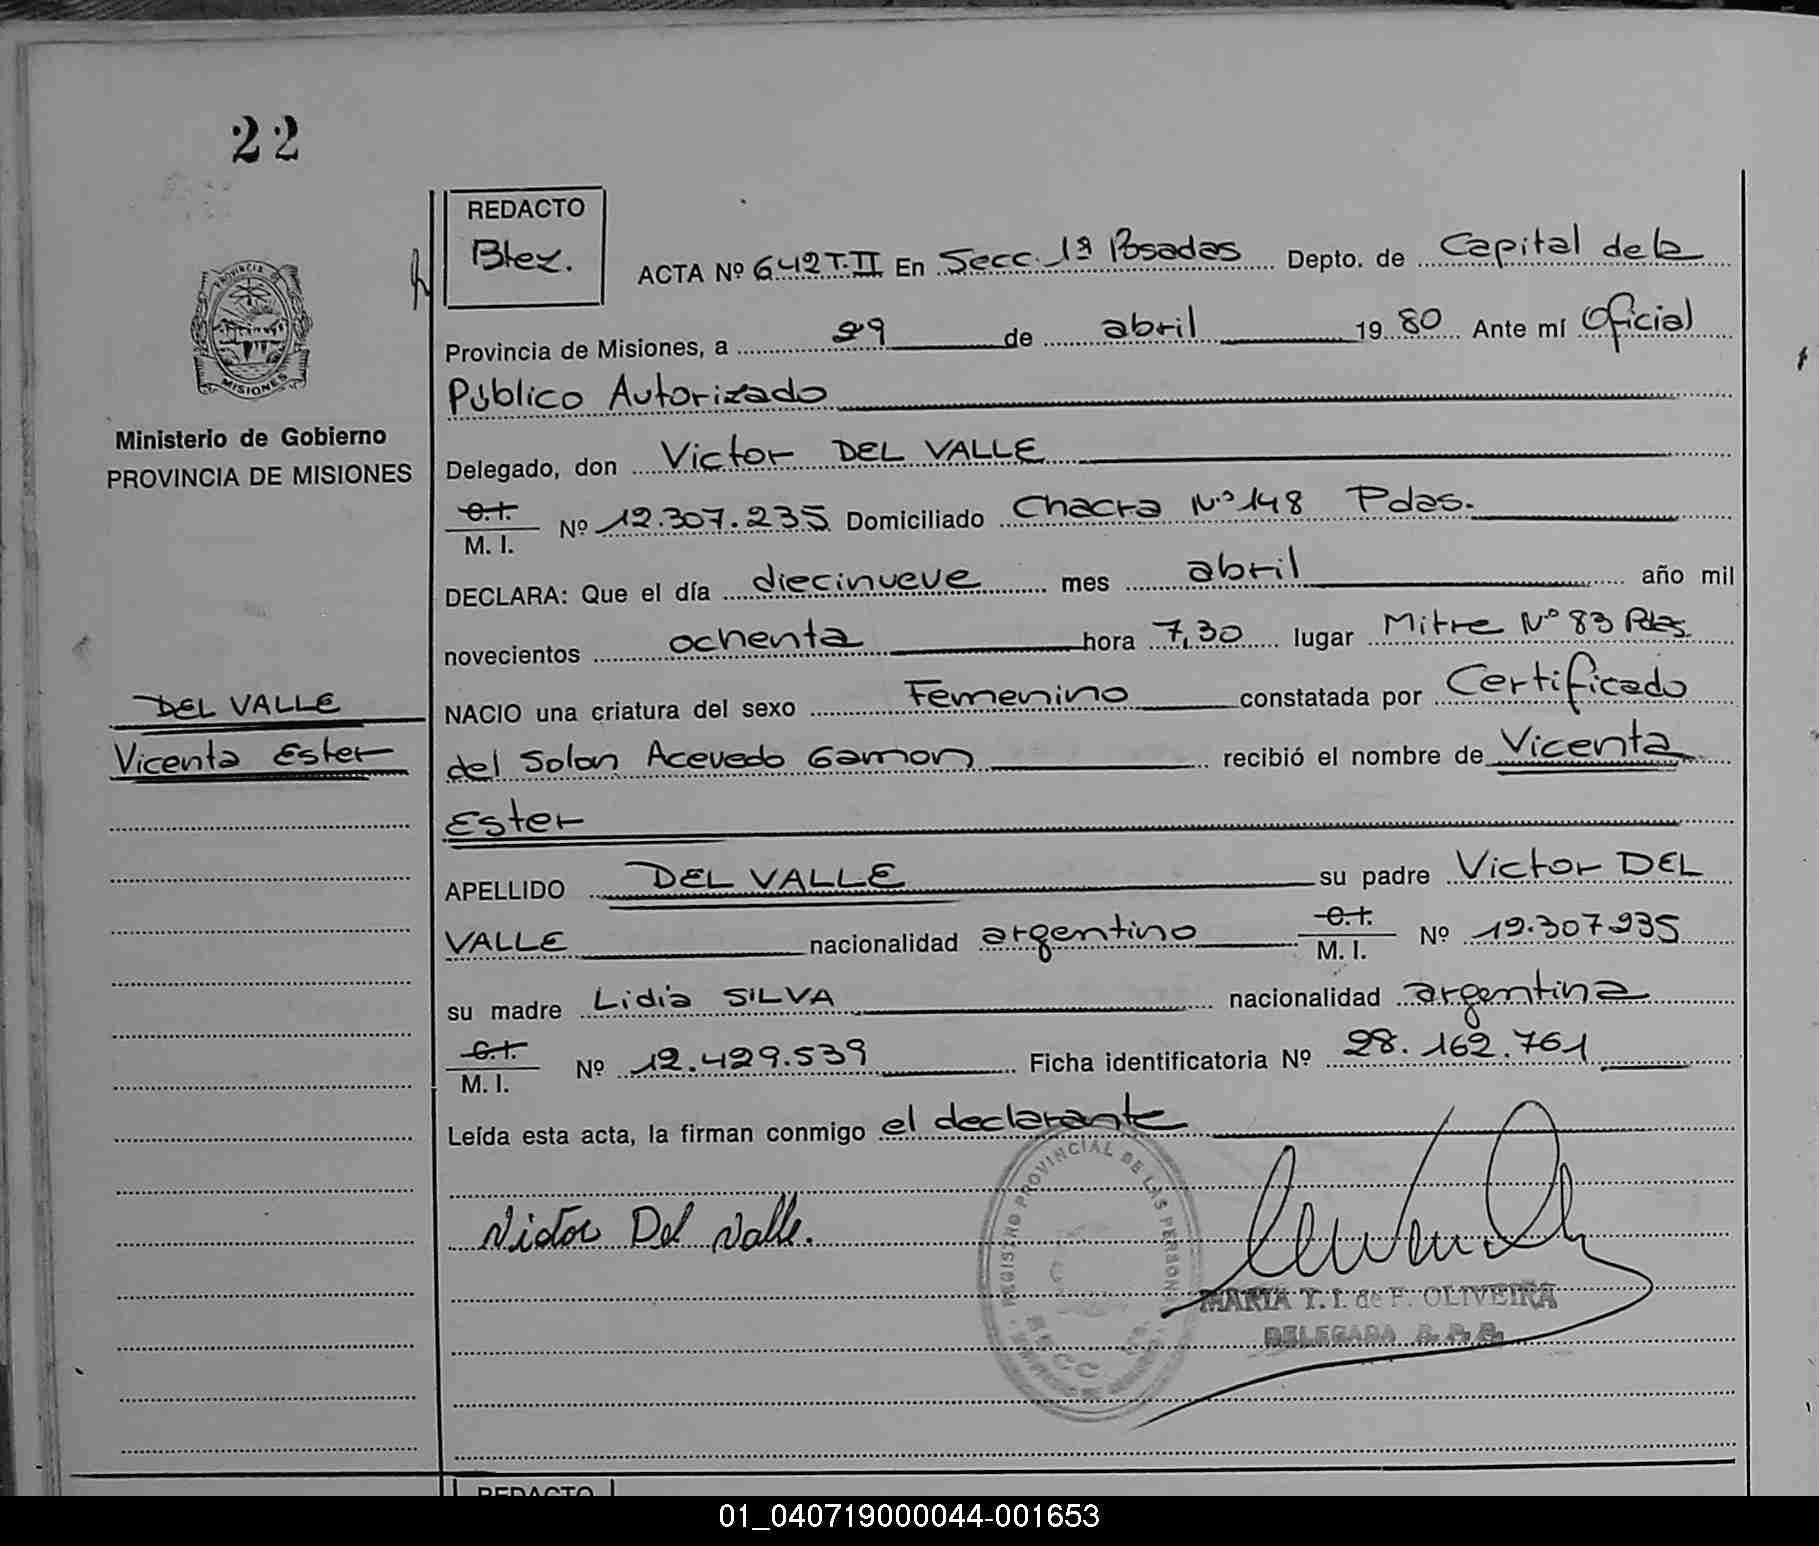 22
REDACTO
Btez.
ACTA Nº 642 T.II En Secc. 1ª Posadas Depto. de Capital de la
Provincia de Misiones, a 29 de abril 19 80 Ante mí Oficial
Público Autorizado
PROVINCIA DE
MISIONES
Ministerio de Gobierno
PROVINCIA DE MISIONES
Delegado, don Victor DEL VALLE
C.I.
M. I. Nº 12.307.235 Domiciliado Chacra Nº 148 Pdas.
DECLARA: Que el día diecinueve mes abril año mil
novecientos ochenta hora 7,30 lugar Mitre Nº 83 Pdas.
DEL VALLE
Vicenta Ester
NACIO una criatura del sexo Femenino constatada por Certificado
del Solon Acevedo Gamon recibió el nombre de Vicenta
Ester
APELLIDO DEL VALLE su padre Victor DEL
VALLE nacionalidad argentino C.I. M. I. Nº 12.307.235
su madre Lidia SILVA nacionalidad argentina
C.I.
M. I. Nº 12.429.539 Ficha identificatoria Nº 28.162.761
Leída esta acta, la firman conmigo el declarante
REGISTRO PROVINCIAL DE LAS PERSONAS
SECC
Victor Del Valle.
MARIA T. I. de F. OLIVEIRA
DELEGADA R. P. P.
REDACTO
01_040719000044-001653